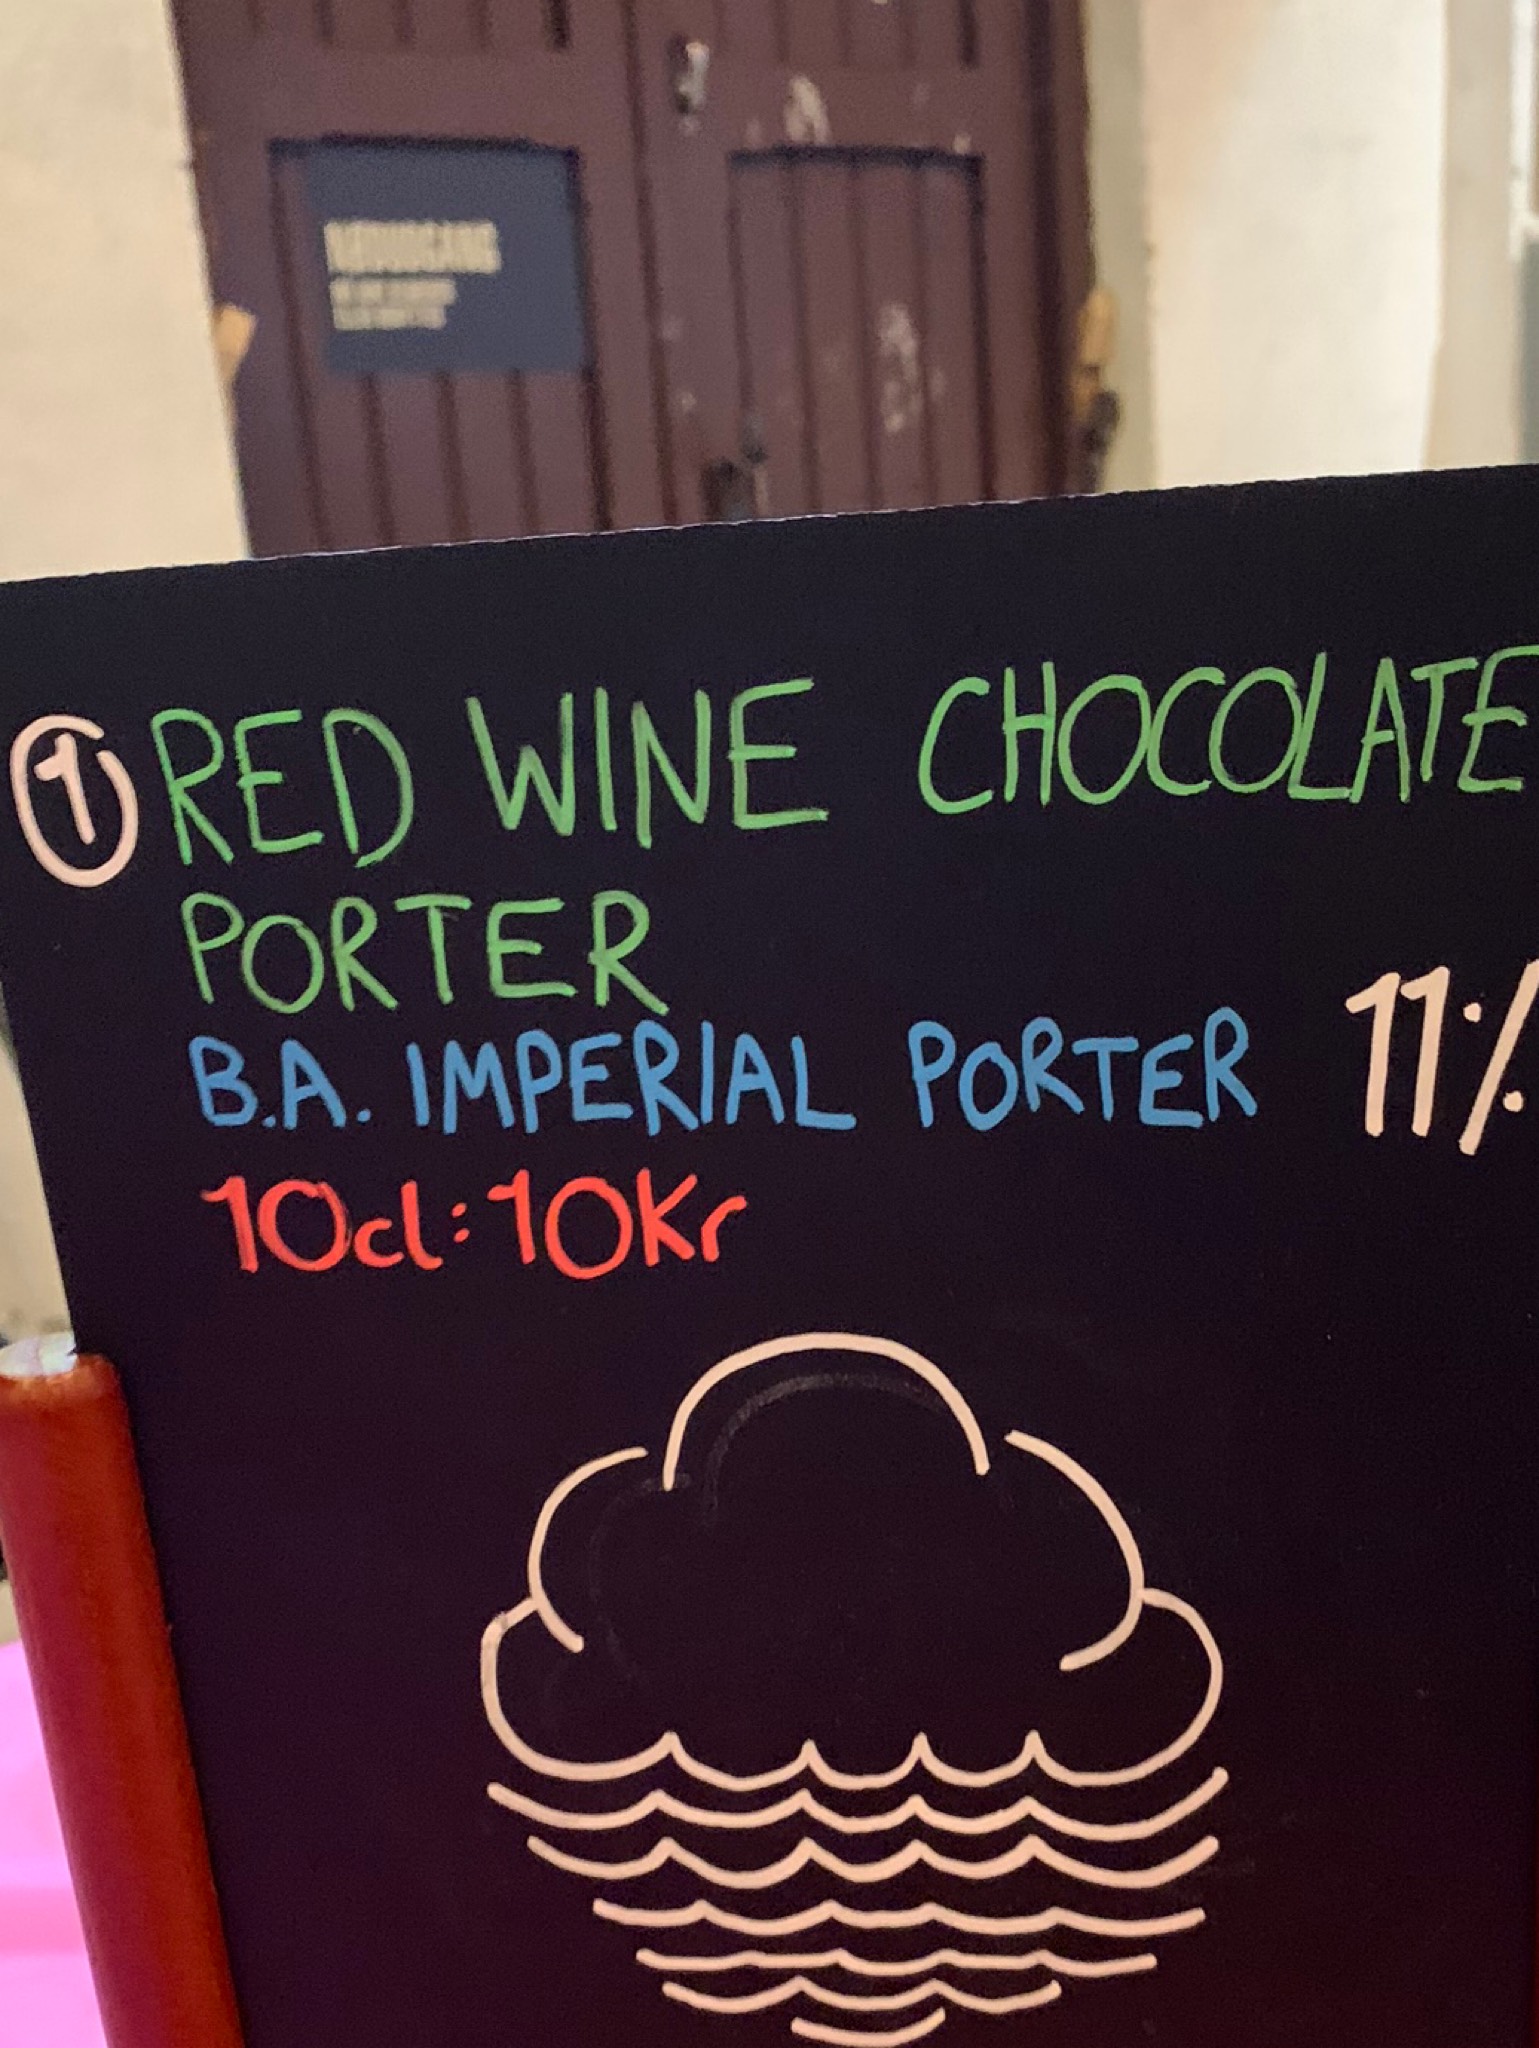 NØDUDGANG
1 RED WINE CHOCOLATE
PORTER
B.A. IMPERIAL PORTER 11%
10cl: 10Kr